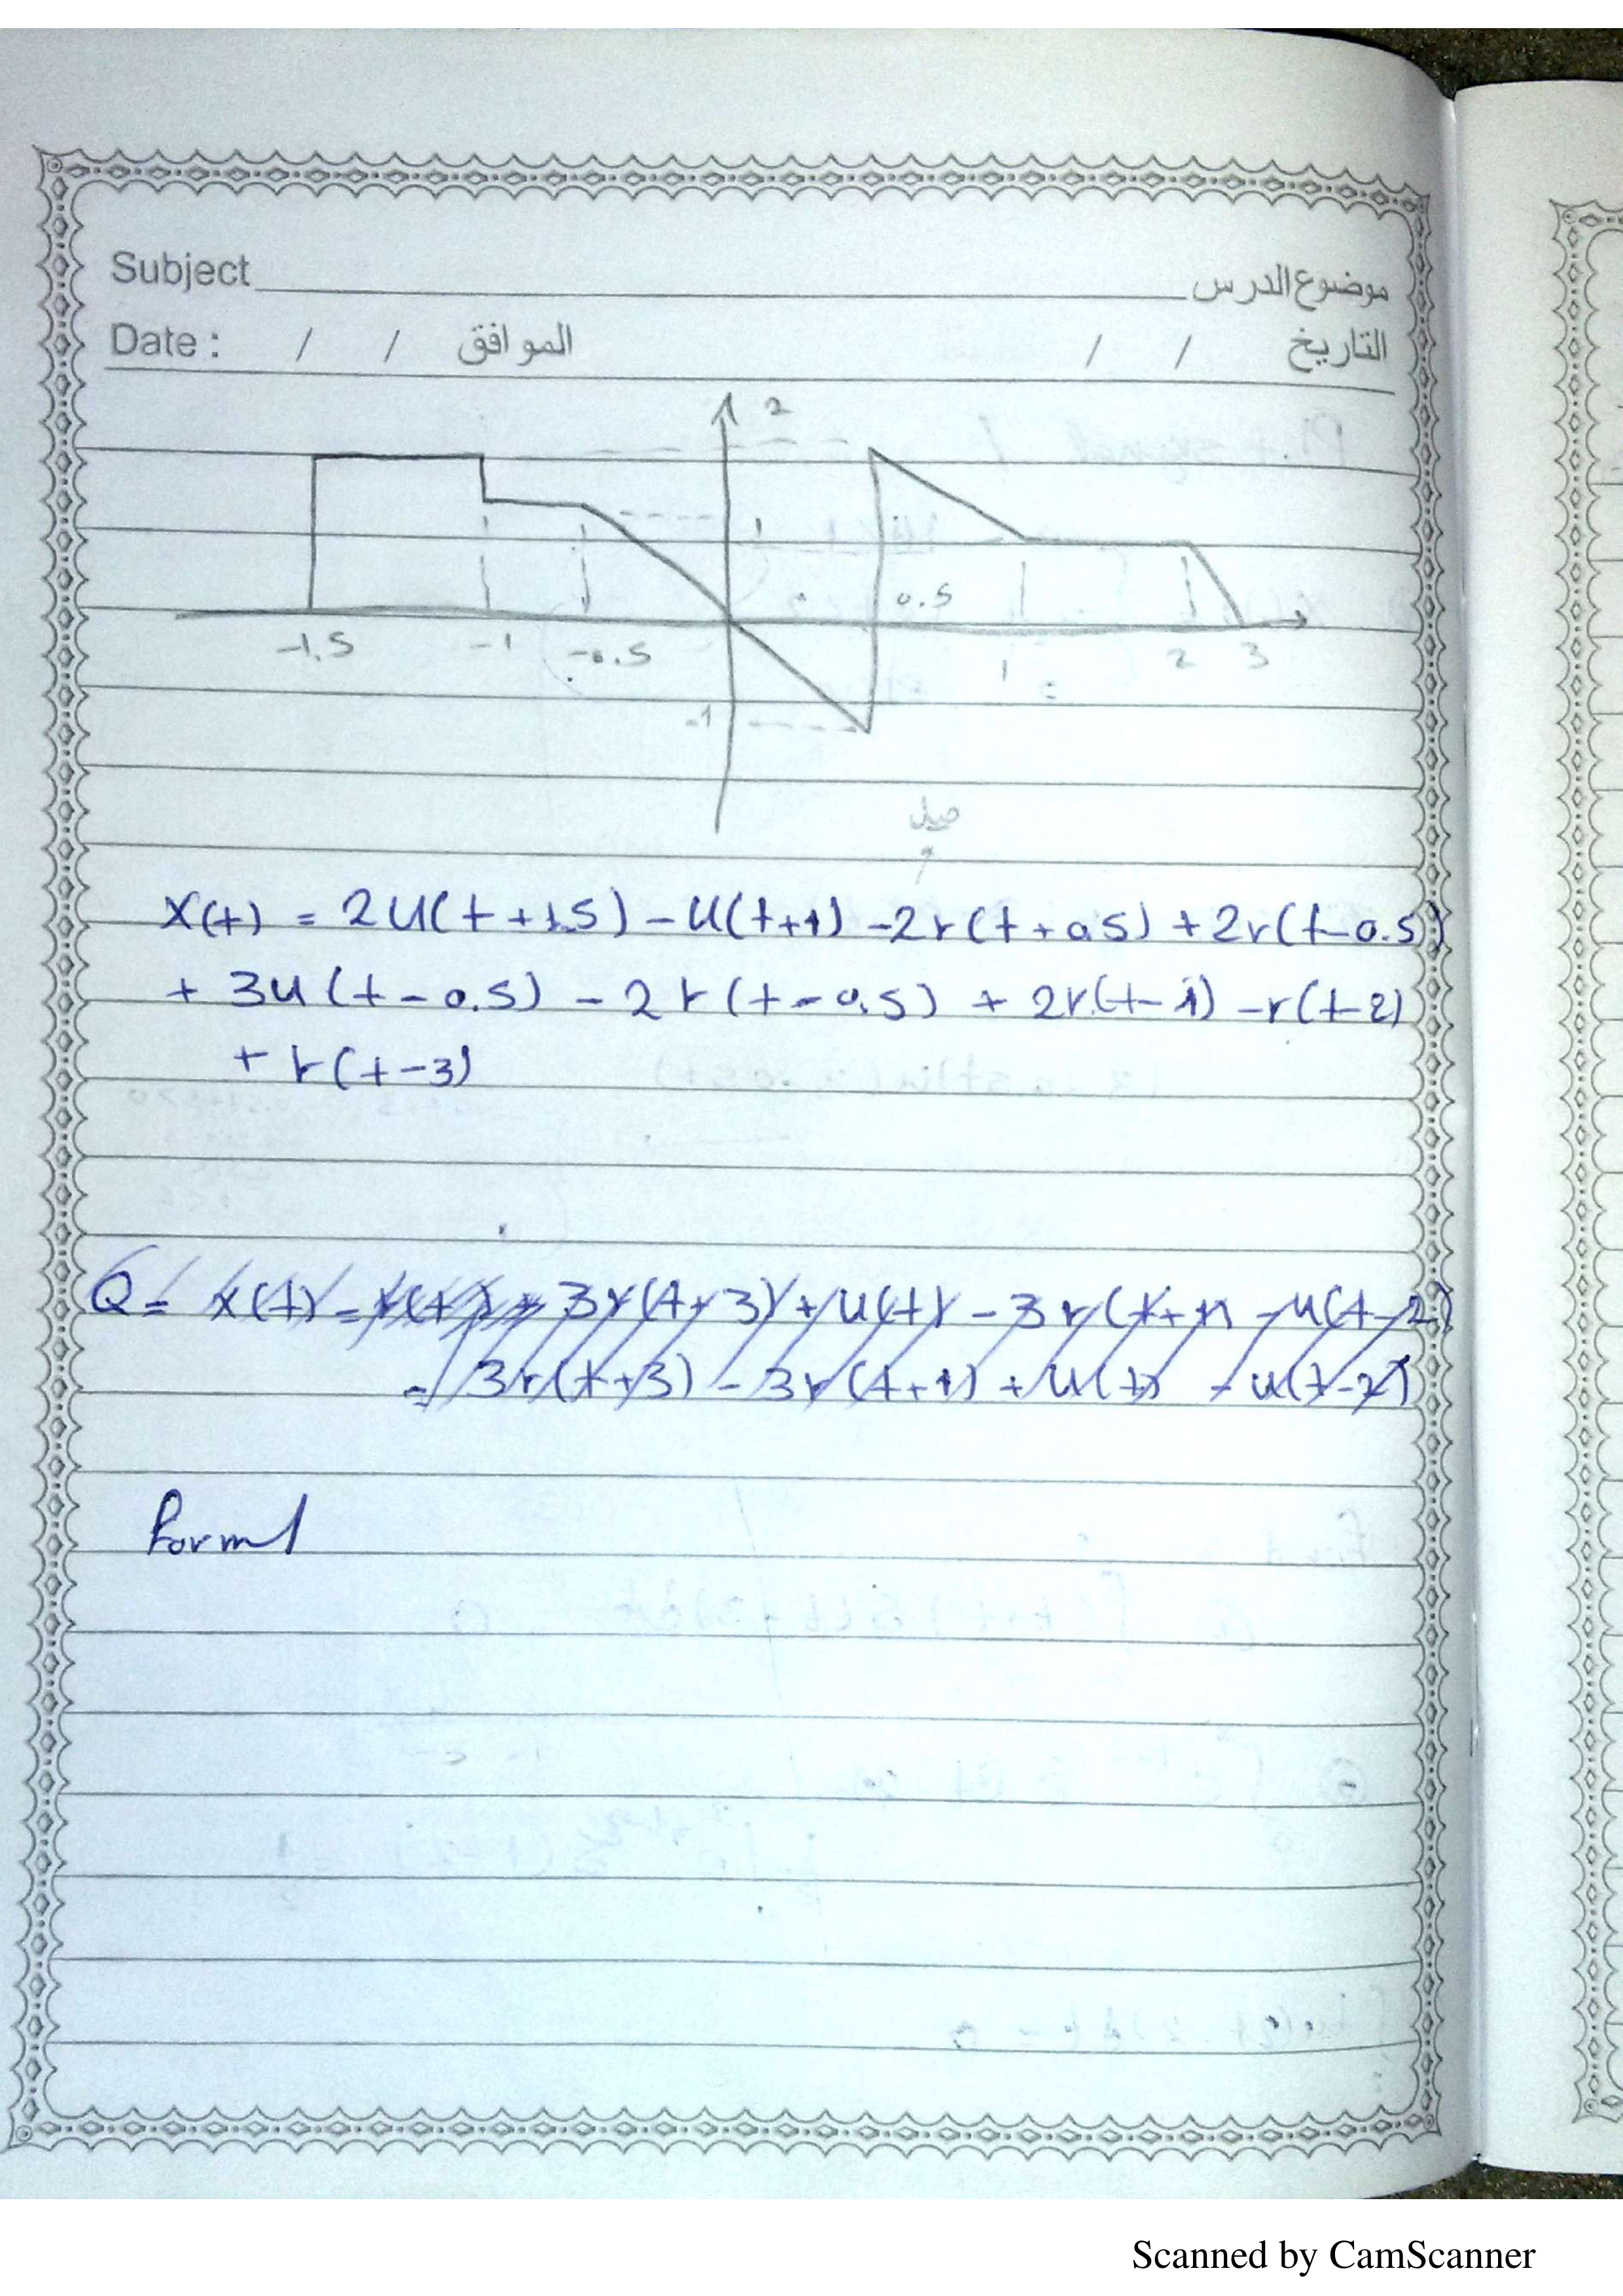 Subject موضوع الدرس
Date : / / الموافق / / التاريخ
2
1
0.5
-1.5 -1 -0.5 1 2 3
-1
ميل
x(t) = 2u(t+1.5) - u(t+1) - 2r(t+0.5) + 2r(t-0.5)
+ 3u(t-0.5) - 2r(t-0.5) + 2r(t-1) - r(t-2)
+ r(t-3)
Q = x(t) = 3r(t+3) + u(t) - 3r(t+1) - u(t-2)
= 3r(t+3) - 3r(t+1) + u(t) - u(t-2)
Scanned by CamScanner